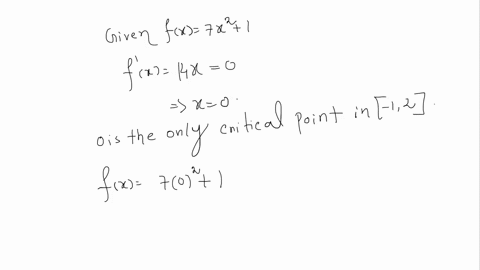 Given f(x)=7x²+1
f'(x)=14x=0
=> x=0.
0 is the only critical point in [-1,2].
f(x)= 7(0)²+1